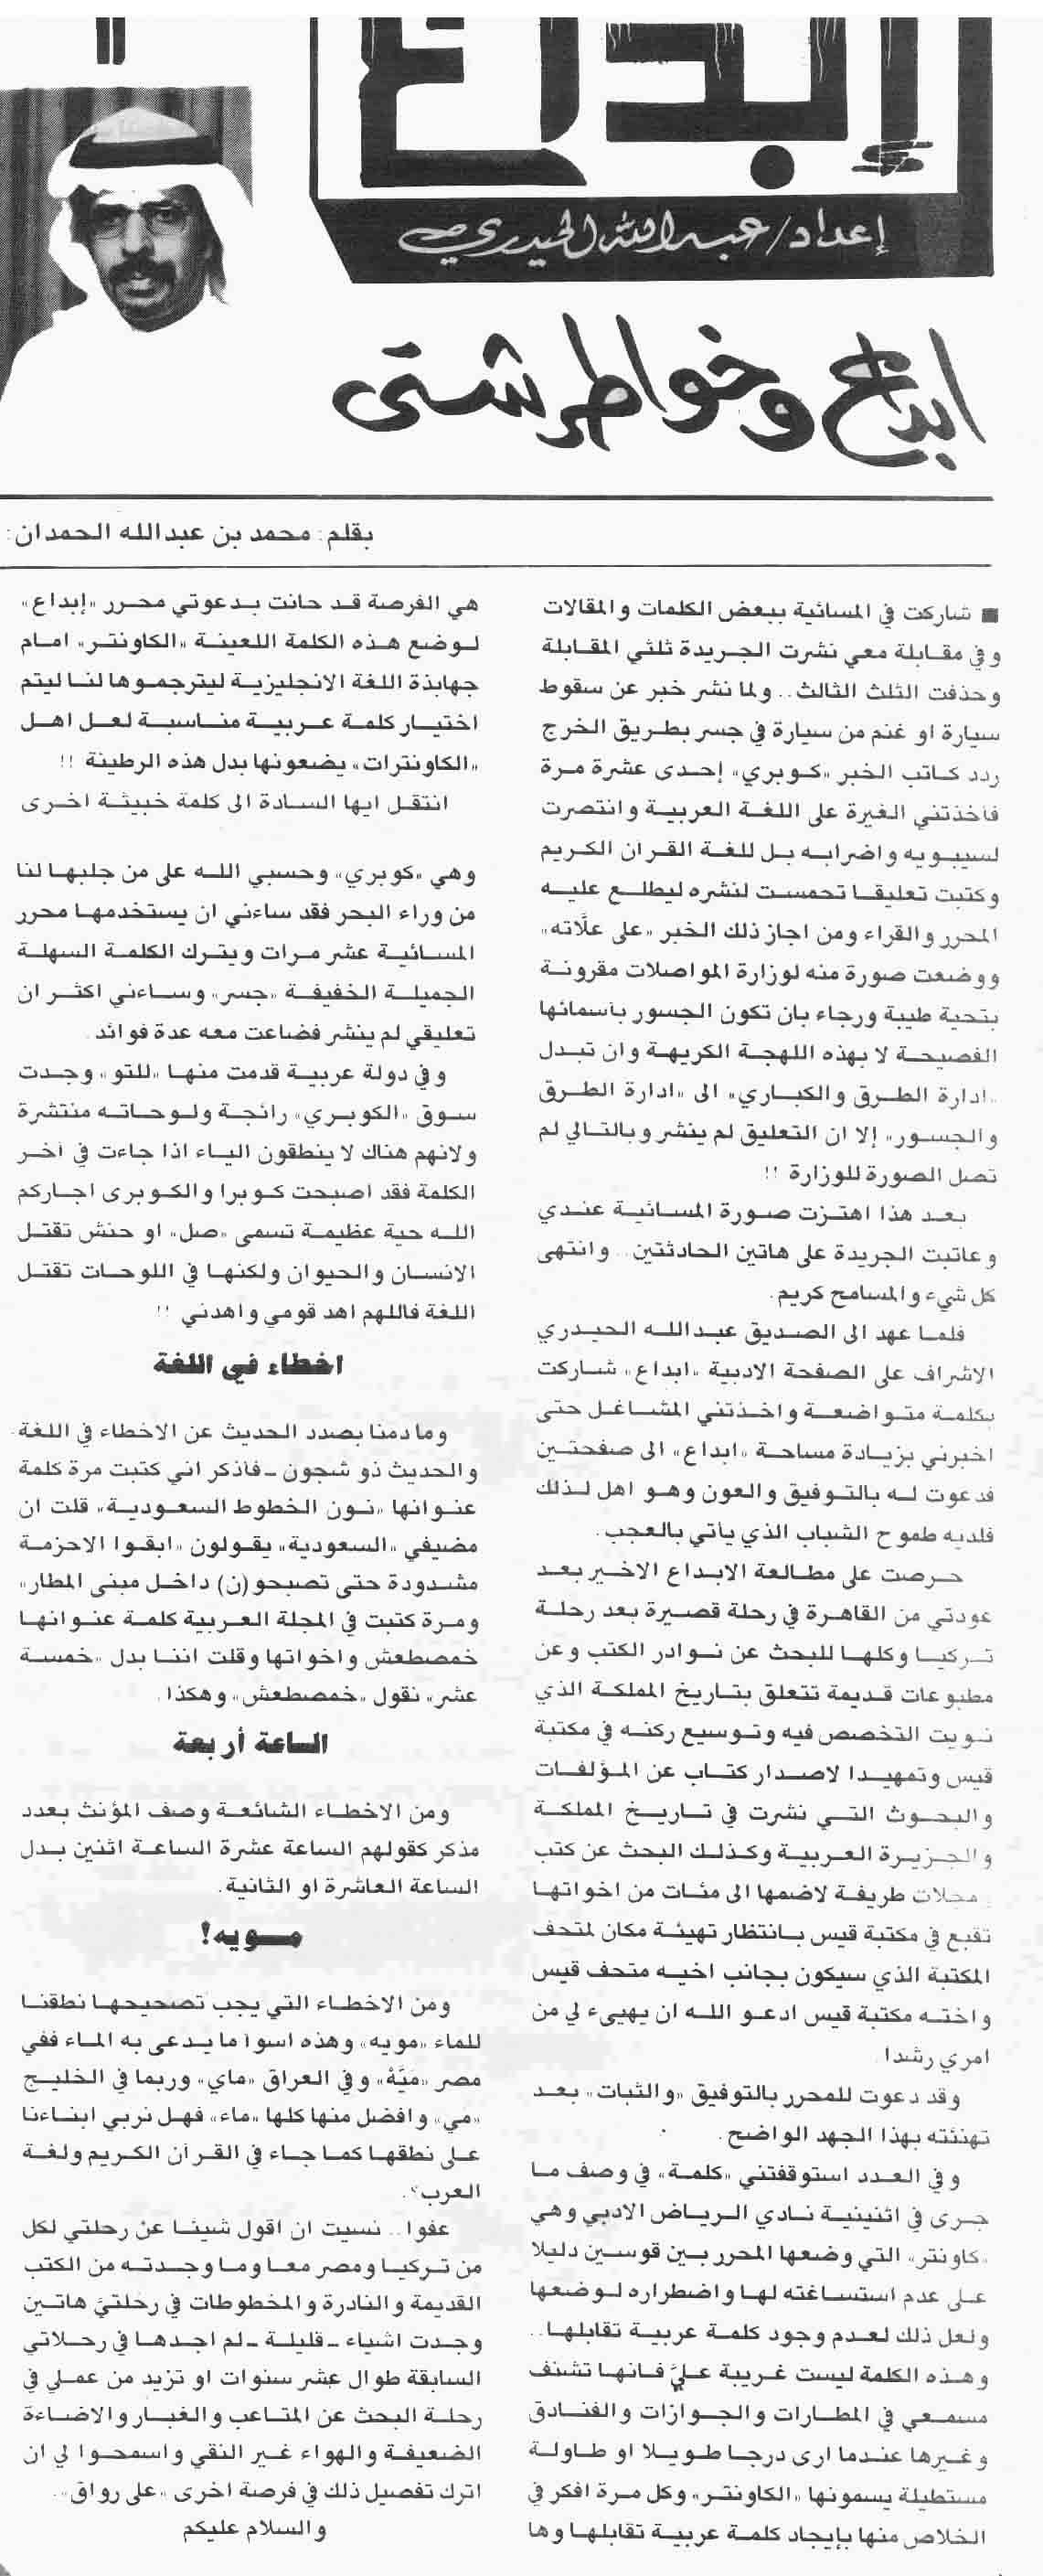 ابداع
إعداد/عبدالله الحيدري
ابداع وخواطر شتى
بقلم: محمد بن عبدالله الحمدان:
■ شاركت في المسائية ببعض الكلمات والمقالات
وفي مقابلة معي نشرت الجريدة ثلثي المقابلة
وحذفت الثلث الثالث.. ولما نشر خبر عن سقوط
سيارة او غنم من سيارة في جسر بطريق الخرج
ردد كاتب الخبر «كوبري» إحدى عشرة مرة
فأخذتني الغيرة على اللغة العربية وانتصرت
لسيبويه واضرابه بل للغة القرآن الكريم
وكتبت تعليقا تحمست لنشره ليطلع عليه
المحرر والقراء ومن اجاز ذلك الخبر «على علاّته»
ووضعت صورة منه لوزارة المواصلات مقرونة
بتحية طيبة ورجاء بان تكون الجسور بأسمائها
الفصيحة لا بهذه اللهجة الكريهة وان تبدل
«ادارة الطرق والكباري» الى «ادارة الطرق
والجسور» إلا ان التعليق لم ينشر وبالتالي لم
تصل الصورة للوزارة !!
بعد هذا اهتزت صورة المسائية عندي
وعاتبت الجريدة على هاتين الحادثتين.. وانتهى
كل شيء والمسامح كريم.
فلما عهد الى الصديق عبدالله الحيدري
الاشراف على الصفحة الادبية «ابداع» شاركت
بكلمة متواضعة واخذتني المشاغل حتى
اخبرني بزيادة مساحة «ابداع» الى صفحتين
فدعوت له بالتوفيق والعون وهو اهل لذلك
فلديه طموح الشباب الذي يأتي بالعجب.
حرصت على مطالعة الابداع الاخير بعد
عودتي من القاهرة في رحلة قصيرة بعد رحلة
تركيا وكلها للبحث عن نوادر الكتب وعن
مطبوعات قديمة تتعلق بتاريخ المملكة الذي
نويت التخصص فيه وتوسيع ركنه في مكتبة
قيس وتمهيدا لاصدار كتاب عن المؤلفات
والبحوث التي نشرت في تاريخ المملكة
والجزيرة العربية وكذلك البحث عن كتب
ومجلات طريفة لاضمها الى مئات من اخواتها
تقبع في مكتبة قيس بانتظار تهيئة مكان لمتحف
المكتبة الذي سيكون بجانب اخيه متحف قيس
واخته مكتبة قيس ادعو الله ان يهيىء لي من
امري رشدا.
وقد دعوت للمحرر بالتوفيق «والثبات» بعد
تهنئته بهذا الجهد الواضح.
وفي العدد استوقفتني «كلمة» في وصف ما
جرى في اثنينية نادي الرياض الادبي وهي
«كاونتر» التي وضعها المحرر بين قوسين دليلا
على عدم استساغته لها واضطراره لوضعها
ولعل ذلك لعدم وجود كلمة عربية تقابلها..
وهذه الكلمة ليست غريبة عليَّ فانها تشنف
مسمعي في المطارات والجوازات والفنادق
وغيرها عندما ارى درجا طويلا او طاولة
مستطيلة يسمونها «الكاونتر» وكل مرة افكر في
الخلاص منها بإيجاد كلمة عربية تقابلها وها
هي الفرصة قد حانت بدعوتي محرر «إبداع»
لوضع هذه الكلمة اللعينة «الكاونتر» امام
جهابذة اللغة الانجليزية ليترجموها لنا ليتم
اختيار كلمة عربية مناسبة لعل اهل
«الكاونترات» يضعونها بدل هذه الرطينة !!
انتقل ايها السادة الى كلمة خبيثة اخرى
وهي «كوبري» وحسبي الله على من جلبها لنا
من وراء البحر فقد ساءني ان يستخدمها محرر
المسائية عشر مرات ويترك الكلمة السهلة
الجميلة الخفيفة «جسر» وساءني اكثر ان
تعليقي لم ينشر فضاعت معه عدة فوائد.
وفي دولة عربية قدمت منها «للتو» وجدت
سوق «الكوبري» رائجة ولوحاته منتشرة
ولانهم هناك لا ينطقون الياء اذا جاءت في آخر
الكلمة فقد اصبحت كوبرا والكوبرى اجاركم
الله حية عظيمة تسمى «صل» او حنش تقتل
الانسان والحيوان ولكنها في اللوحات تقتل
اللغة فاللهم اهد قومي واهدني !!
اخطاء في اللغة
وما دمنا بصدد الحديث عن الاخطاء في اللغة
والحديث ذو شجون ـ فأذكر اني كتبت مرة كلمة
عنوانها «نون الخطوط السعودية» قلت ان
مضيفي «السعودية» يقولون «ابقوا الاحزمة
مشدودة حتى تصبحو(ن) داخل مبنى المطار»
ومرة كتبت في المجلة العربية كلمة عنوانها
خمصطعش واخواتها وقلت اننا بدل «خمسة
عشر» نقول «خمصطعش» وهكذا.
الساعة أربعة
ومن الاخطاء الشائعة وصف المؤنث بعدد
مذكر كقولهم الساعة عشرة الساعة اثنين بدل
الساعة العاشرة او الثانية.
مويه!
ومن الاخطاء التي يجب تصحيحها نطقنا
للماء «مويه» وهذه اسوأ ما يدعى به الماء ففي
مصر «مَيَّهْ» وفي العراق «ماي» وربما في الخليج
«مي» وافضل منها كلها «ماء» فهل نربي ابناءنا
على نطقها كما جاء في القرآن الكريم ولغة
العرب؟.
عفوا.. نسيت ان اقول شيئا عن رحلتي لكل
من تركيا ومصر معا وما وجدته من الكتب
القديمة والنادرة والمخطوطات في رحلتيَّ هاتين
وجدت اشياء ـ قليلة ـ لم اجدها في رحلاتي
السابقة طوال عشر سنوات او تزيد من عملي في
رحلة البحث عن المتاعب والغبار والاضاءة
الضعيفة والهواء غير النقي واسمحوا لي ان
اترك تفصيل ذلك في فرصة اخرى «على رواق».
والسلام عليكم